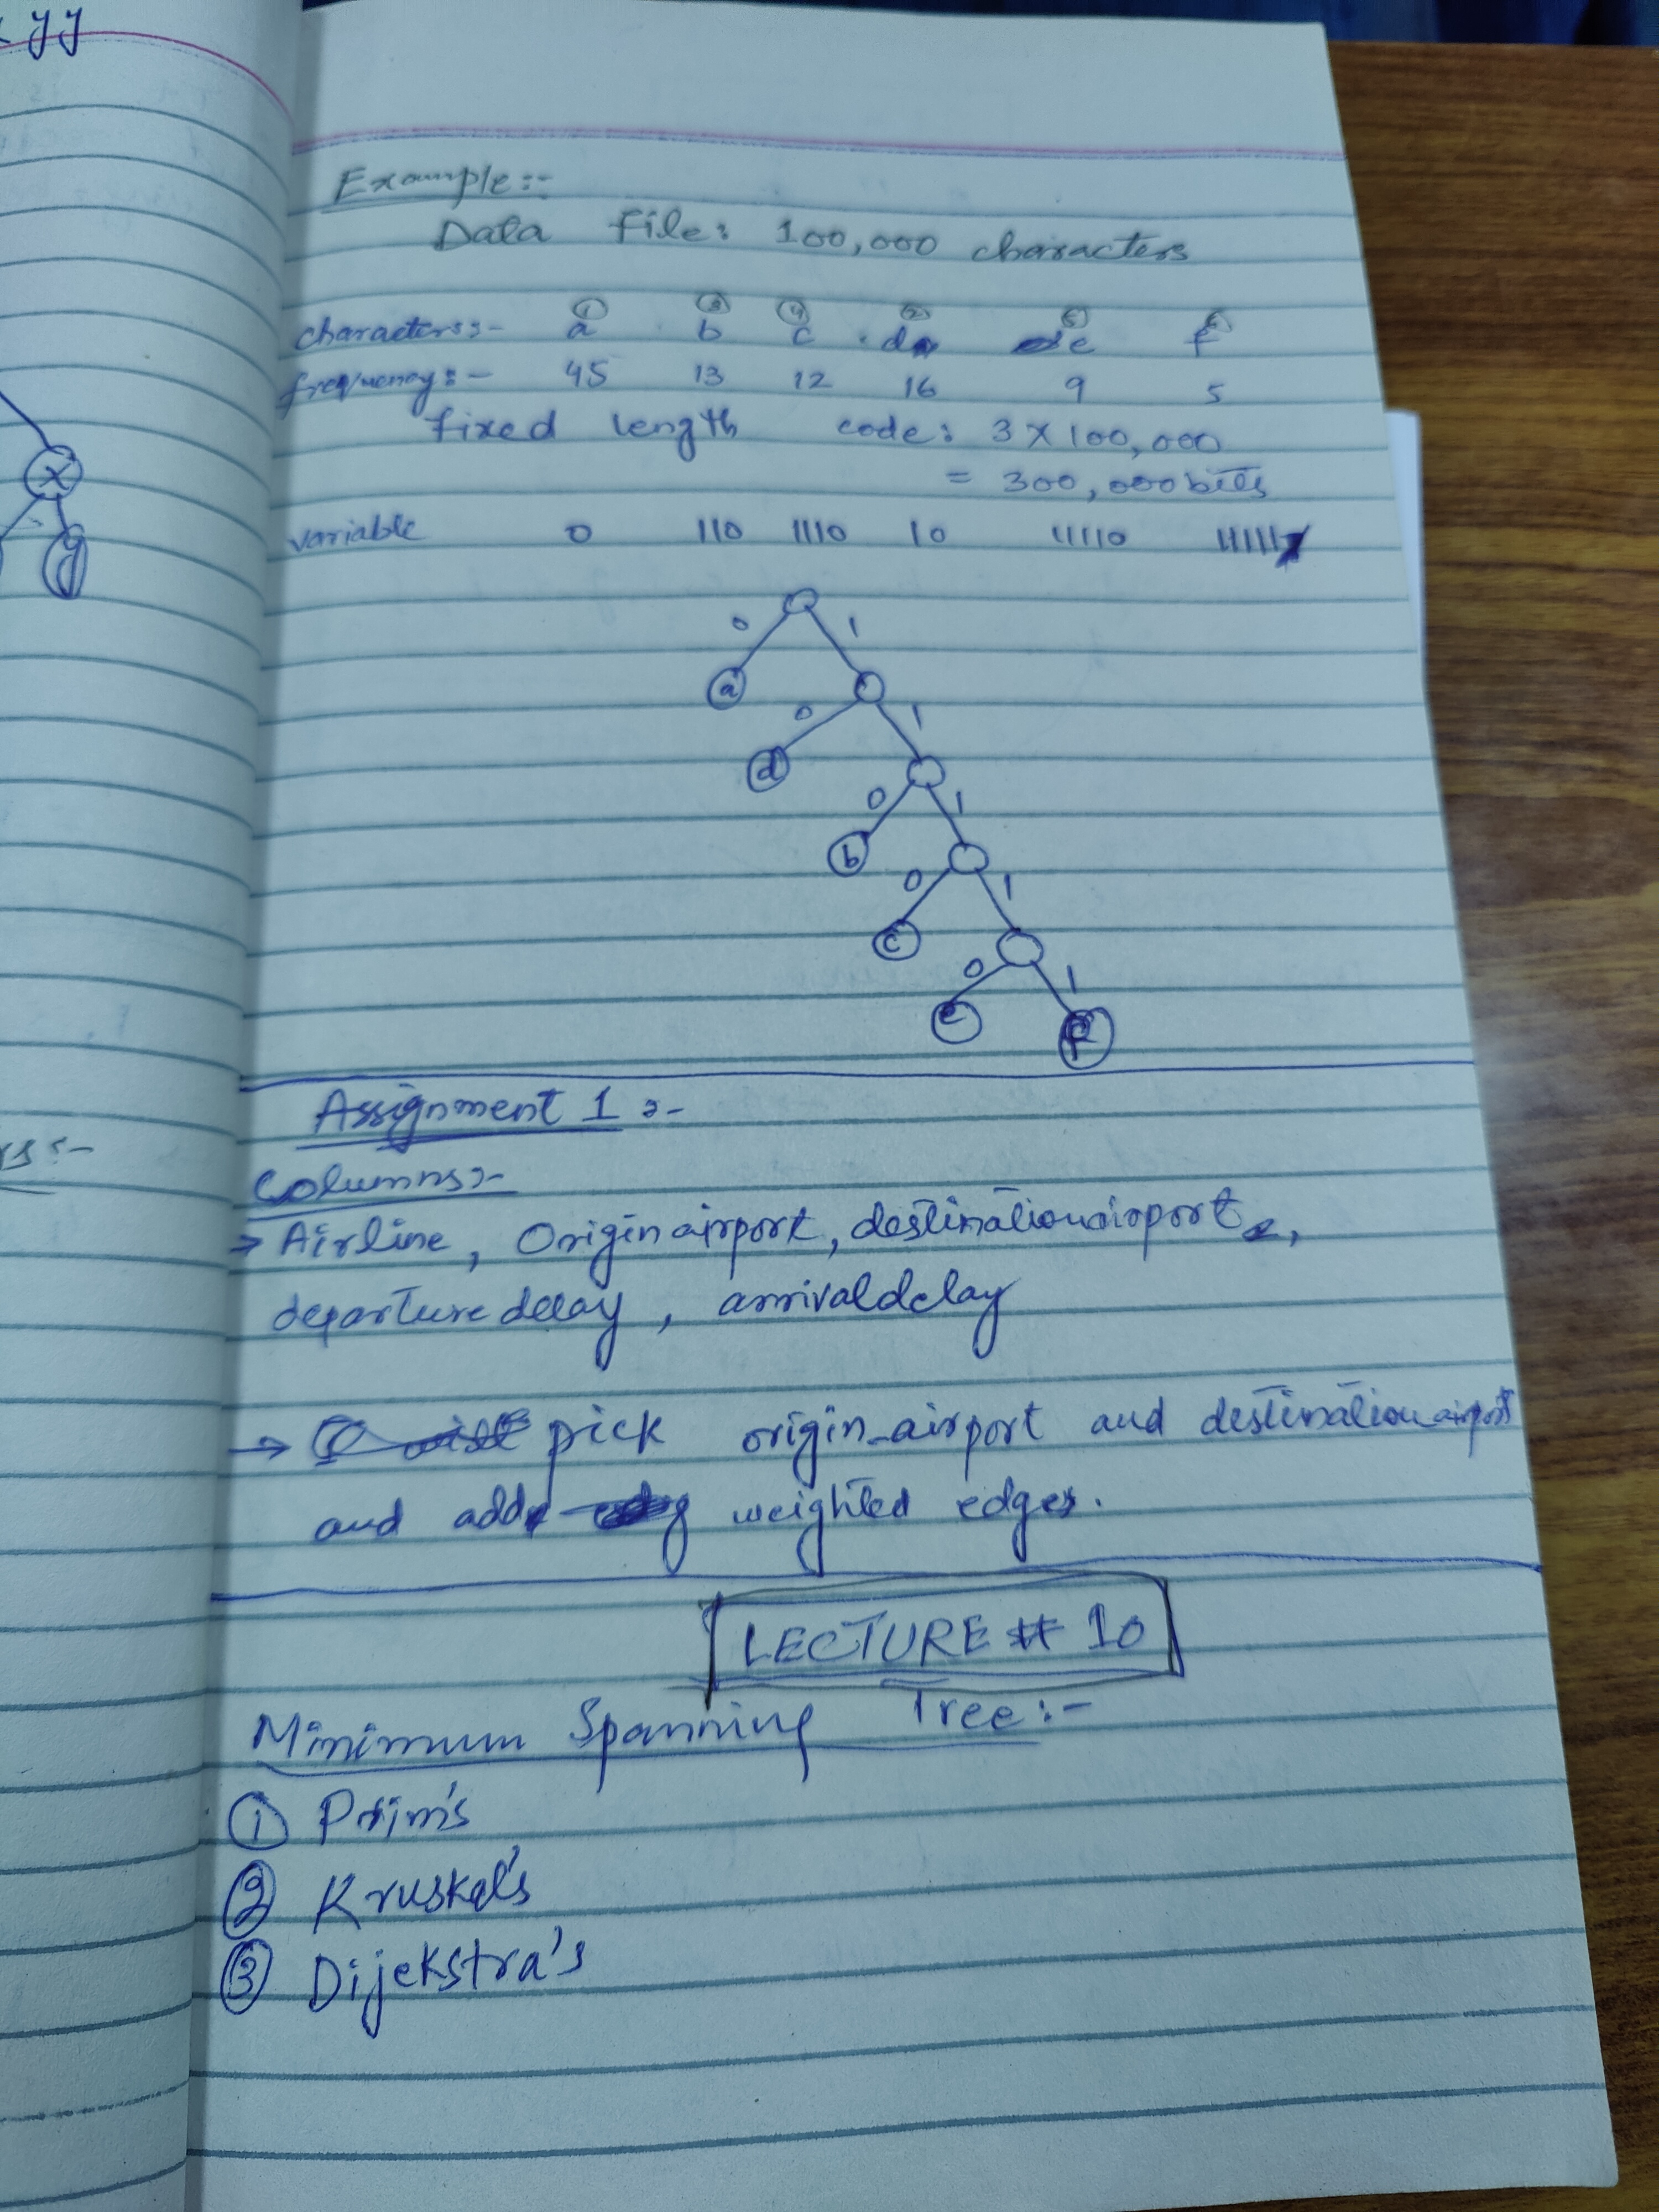 yy
x
g
rs:-
Example:-
Data File: 100,000 characters
① ③ ④ ② ⑤ ⑥
characters:- a b c d e f
frequency:- 45 13 12 16 9 5
fixed length code: 3 X 100,000
= 300,000 bits
variable 0 110 1110 10 11110 11111
0 1
a
0 1
d
0 1
b
0 1
c
0 1
e f
Assignment 1 :-
Columns:-
→ Airline, Origin airport, destinationairport,
departure delay, arrivaldelay
→ pick origin_airport and destination_airport
and add weighted edges.
LECTURE # 10
Minimum Spanning Tree:-
① Prim's
② Kruskal's
③ Dijekstra's